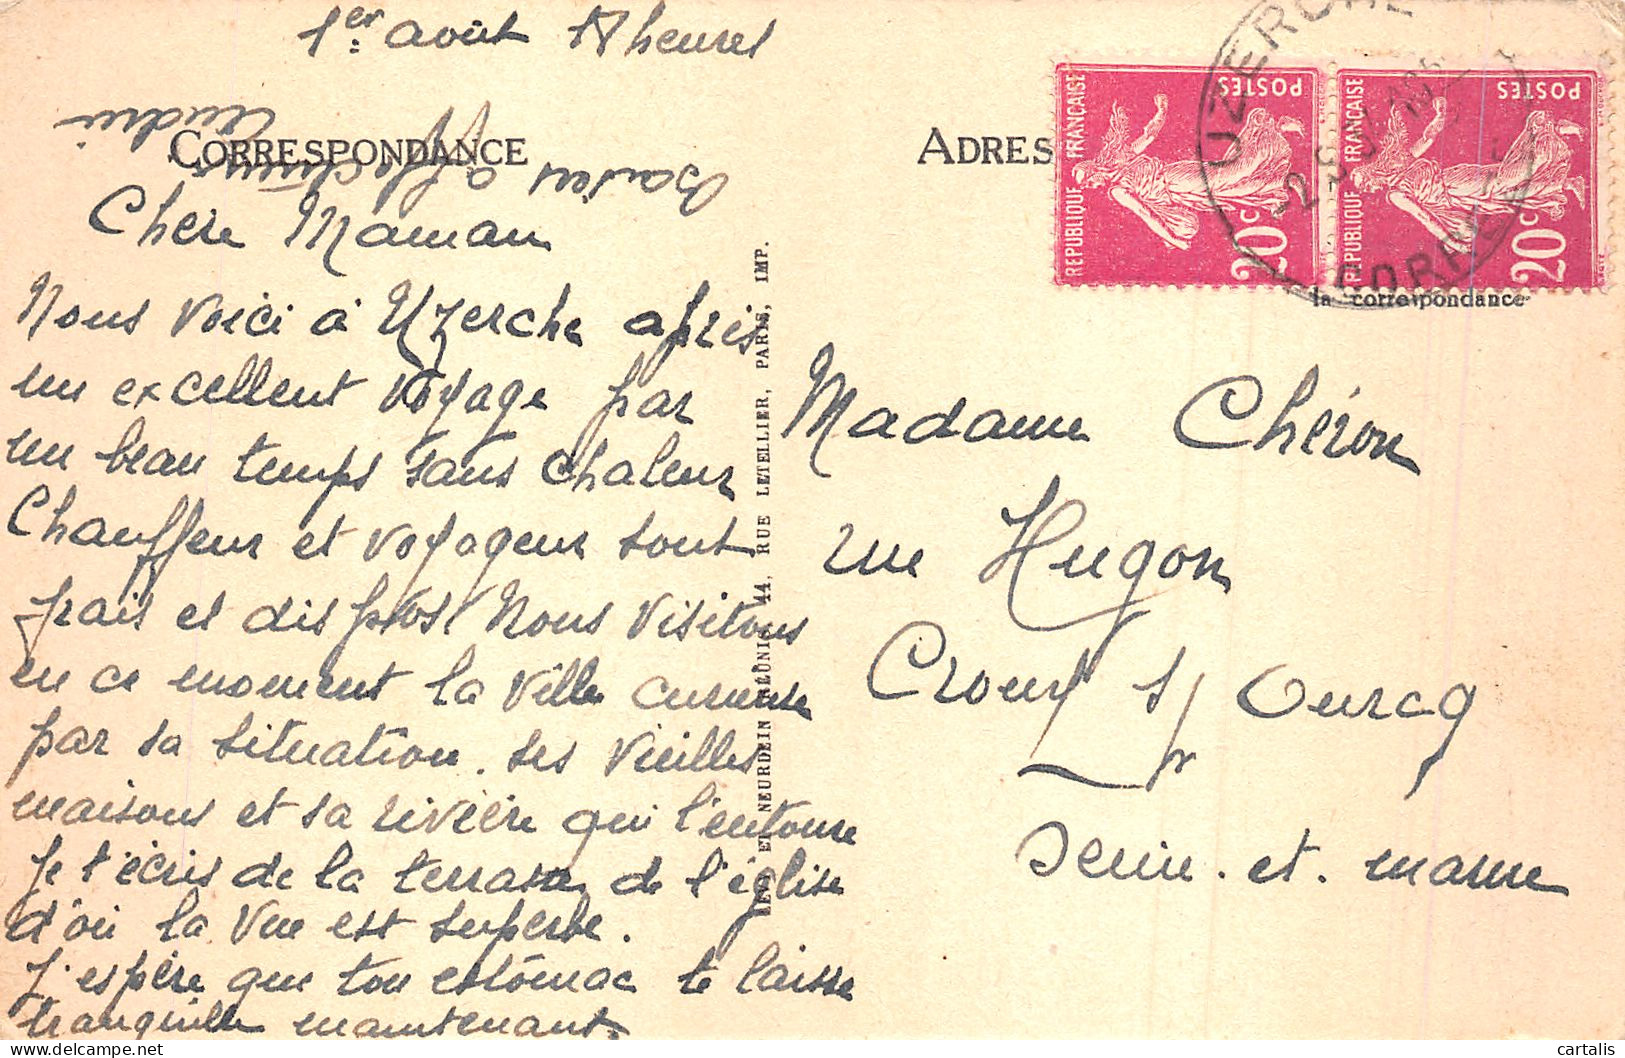 1er août 17 heures
CORRESPONDANCE
ADRES
Baisers à
André
Chère Maman
Nous voici à Uzerche après
un excellent voyage par
un beau temps sans chaleur
Chauffeur et voyageur sont
frais et dispos. Nous visitons
en ce moment la ville curieuse
par sa situation, ses vieilles
maisons et sa rivière qui l'entoure
Je t'écris de la terrasse de l'église
d'où la vue est superbe.
J'espère que ton estomac te laisse
tranquille maintenant.
NEURDEIN RÉUNIS, 44, RUE LETELLIER, PARIS, IMP.
REPUBLIQUE FRANÇAISE
POSTES
20c
REPUBLIQUE FRANÇAISE
POSTES
20c
UZERCHE
CORRÈZE
la correspondance
Madame Chéron
rue Hugon
Crouy s/ Ourcq
Seine-et-marne
cartalis